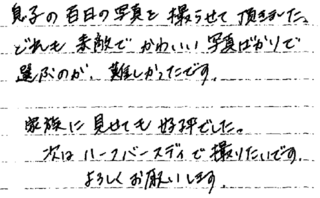 息子の百日の写真を撮らせて頂きました。
どれも素敵でかわいい写真ばかりで
選ぶのが、難しかったです。
家族に見せても好評でした。
次はハーフバースディで撮りたいです。
よろしくお願いします。